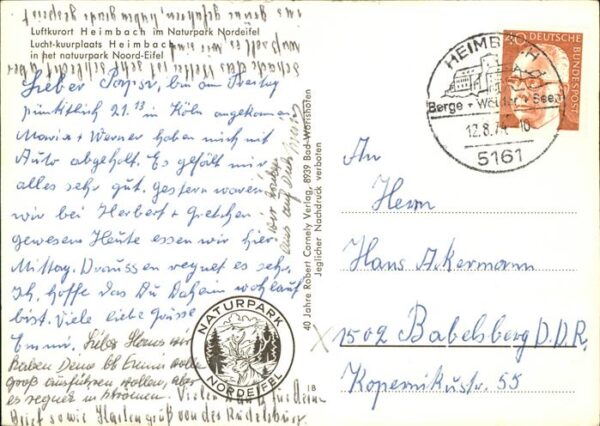 Luftkurort Heimbach im Naturpark Nordeifel
Lucht-kuurplaats Heimbach
in het natuurpark Noord-Eifel
Lieber Papsi, bin am Freitag
pünktlich 21.13 in Köln angekommen
Maria + Werner haben mich mit
Auto abgeholt. Es gefällt mir
alles sehr gut. Gestern waren
wir bei Herbert + Gretchen
gewesen Heute essen wir hier
Mittag. Draussen regnet es sehr
Ich hoffe das Du Daheim wohlauf
bist. Viele liebe Grüsse
Emmi. Lieber Hans wir
haben Deine lb Emmi
groß ausführen wollen, aber
es regnet in Strömen. Vielen Dank für Dein
Brief sowie Kartengruß von der Rudelsburg.
40 Jahre Robert Cornely Verlag, 8939 Bad Wörishofen
Jeglicher Nachdruck verboten
NATURPARK
NORDEIFEL
18
HEIMBACH
Berge + Wälder + Seen
12.8.74-10
5161
40 DEUTSCHE BUNDESPOST
An
Herrn
Hans Ackermann
1502 Babelsberg D.D.R.
Kopernikustr. 55